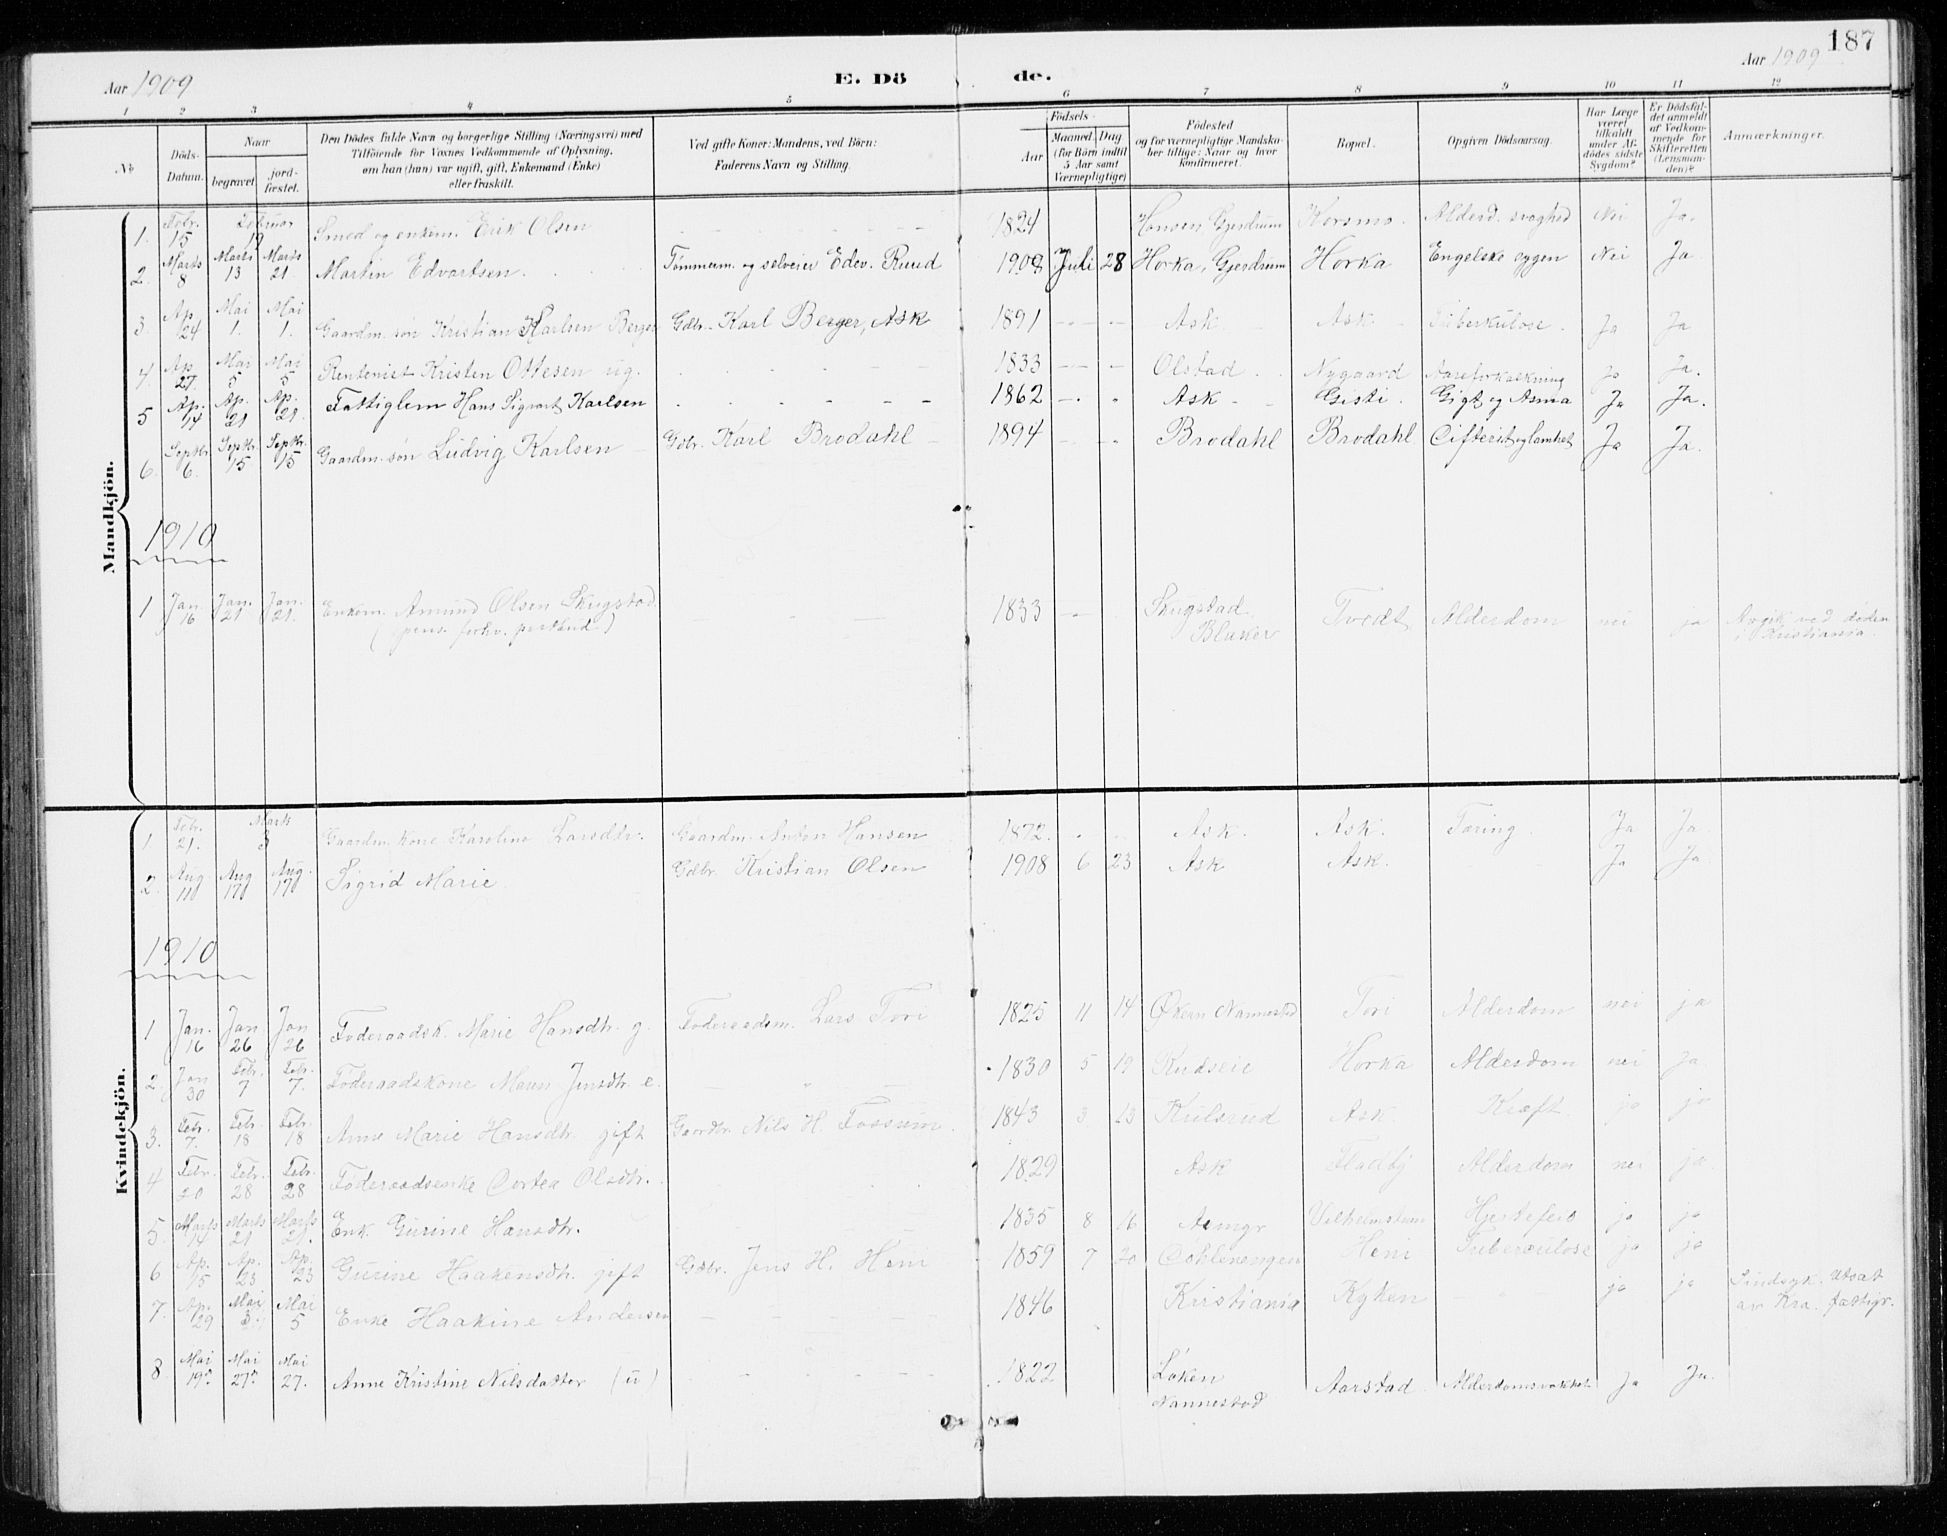 187
Aar 1909 E. Dö de. Aar 1909
1 2 3 4 5 6 7 8 9 10 11 12
No. Döds-Datum. Naar begravet. jordfæstet. Den Dödes fulde Navn og borgerlige Stilling (Næringsvei) med Tilföiende for Voxnes Vedkommende af Oplysning, om han (hun) var ugift, gift, Enkemand (Enke) eller fraskilt. Ved gifte Koner: Mandens, ved Börn: Faderens Navn og Stilling. Födsels- Aar Maaned Dag (for Börn indtil 5 Aar samt Værnepligtige) Födested og for værnepligtige Mandskaber tillige: Naar og hvor konfirmeret. Bopæl. Opgiven Dödsaarsag. Har Læge været tilkaldt under Afdödes sidste Sygdom? Er Dödsfaldet anmeldt af Vedkommende for Skifteretten (Lensmanden)? Anmærkninger.
Mandkjön.
1. Febr. 15 Februar 19 Smed og enkem. Erik Olsen 1824 Hønsen, Gjerdrum Korsmo. Alderd. svaghed Nei Ja.
2. Marts 8 Marts 13 Marts 21. Martin Edvartsen. Tømmerm. og selveier Edv. Ruud 1908 Juli 28 Horka, Gjerdrum Horka Engelske sygen Nei Ja
3. Ap. 24 Mai 1. Mai 1. Gaardm. søn Kristian Karlsen Berger Gdbr. Karl Berger, Ask 1891 Ask Ask Tuberkulose. Ja Ja
4. Ap. 27. Mai 5 Mai 5 Rentenist Kristen Ottesen ug. 1833 Olstad Nygaard Aareforkalkning Ja Ja.
5 Ap. 14 Ap. 21 Ap. 21. Fattiglem Hans Sigvart Karlsen 1862 Ask Gisti Gigt og Asma Ja Ja.
6. Septbr. 6. Septbr. 15 Septbr. 15 Gaardm. søn Ludvig Karlsen Gdbr. Karl Brodahl 1894 Brodahl Brodahl Cifterit og lamhet Ja Ja.
1910
1 Jan. 16 Jan. 21 Jan. 21. Enkem. Amund Olsen Skugstad 1833 Skugstad Tvedt Alderdom nei ja Avgik ved døden
(pens. forhv. postbud.) Blaker i Kristiania.
Kvindekjön.
1 Febr. 21. Marts 3 Gaardm. kone Karoline Larsdtr. Gaardm. Anton Hansen 1872. Ask. Ask. Tæring. Ja Ja.
2. Aug. 11 Aug 17 Aug. 17 Sigrid Marie Gdbr. Kristian Olsen 1908 6 23 Ask Ask. Ja Ja
1910
1 Jan. 16 Jan 26 Jan 26 Føderaadsk. Marie Hansdtr. g. Føderaadsm. Lars Tori 1825 11 14 Økern Nannestad Tori Alderdom nei ja
2. Jan 30 Febr. 7 Febr. 7. Føderaadskone Maren Jensdtr. e. 1830 5 19 Rudseie Horka Alderdom nei ja
3. Febr. 7. Febr. 18 Febr. 18 Anne Marie Hansdtr. gift Gaardbr. Nils H. Fossum 1843 3 13 Kulsrud Ask Kræft. ja ja
4 Febr. 20 Febr. 28 Febr. 28 Føderaadsenke Dortea Olsdtr. 1829 Ask Fladby Alderdom nei ja
5. Marts 14 Marts 21 Marts 21. Enk. Gurine Hansdtr. 1835 8 16 Hjertefeil ja ja
6 Ap. 15 Ap. 23 Ap. 23 Gurine Haakensdtr. gift Gdbr. Jens H. Heni 1859 7 20 Heni Tuberculose ja ja
7. Ap. 29 Mai Mai 5 Enke Haakine Andersen 1846 Kristiania Kyken ja ja Sindsyk. Utsat av Kra. fattigv.
8 Mai 19de Mai 27de Mai 27. Anne Kristine Nilsdatter (u) 1822 Løken Nannestad Aarstad Alderdomssvakhet Ja Ja.